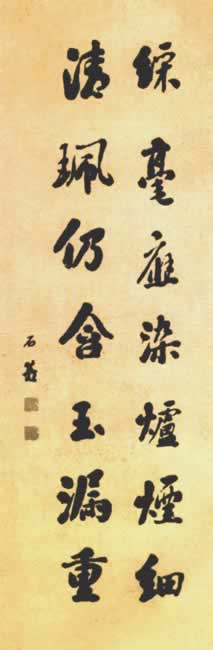 綵毫應染爐煙細
清珮仍含玉漏重
石菴